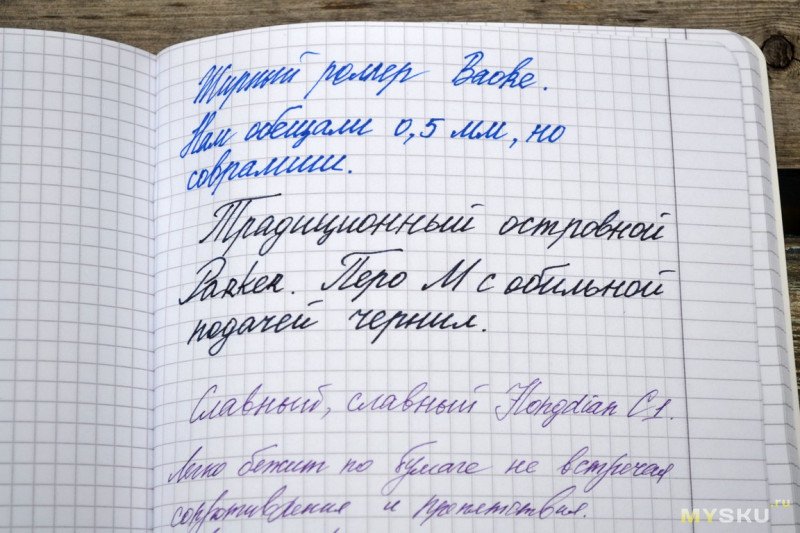 Жирный роллер Baoke.
Нам обещали 0,5 мм, но
соврамши.
Традиционный островной
Parker. Перо М с обильной
подачей чернил.
Славный, славный Hongdian C1.
Легко бежит по бумаге не встречая
сопротивления и препятствия.
MYSKU.ru